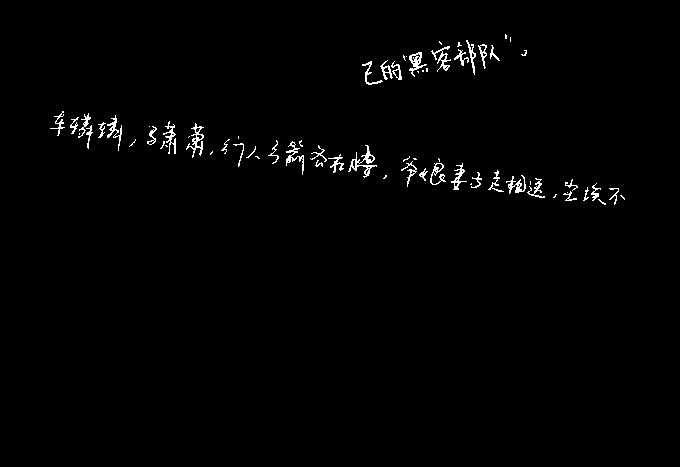 己的“黑客部队”。
车辚辚，马萧萧，行人弓箭各在腰，爷娘妻子走相送，尘埃不